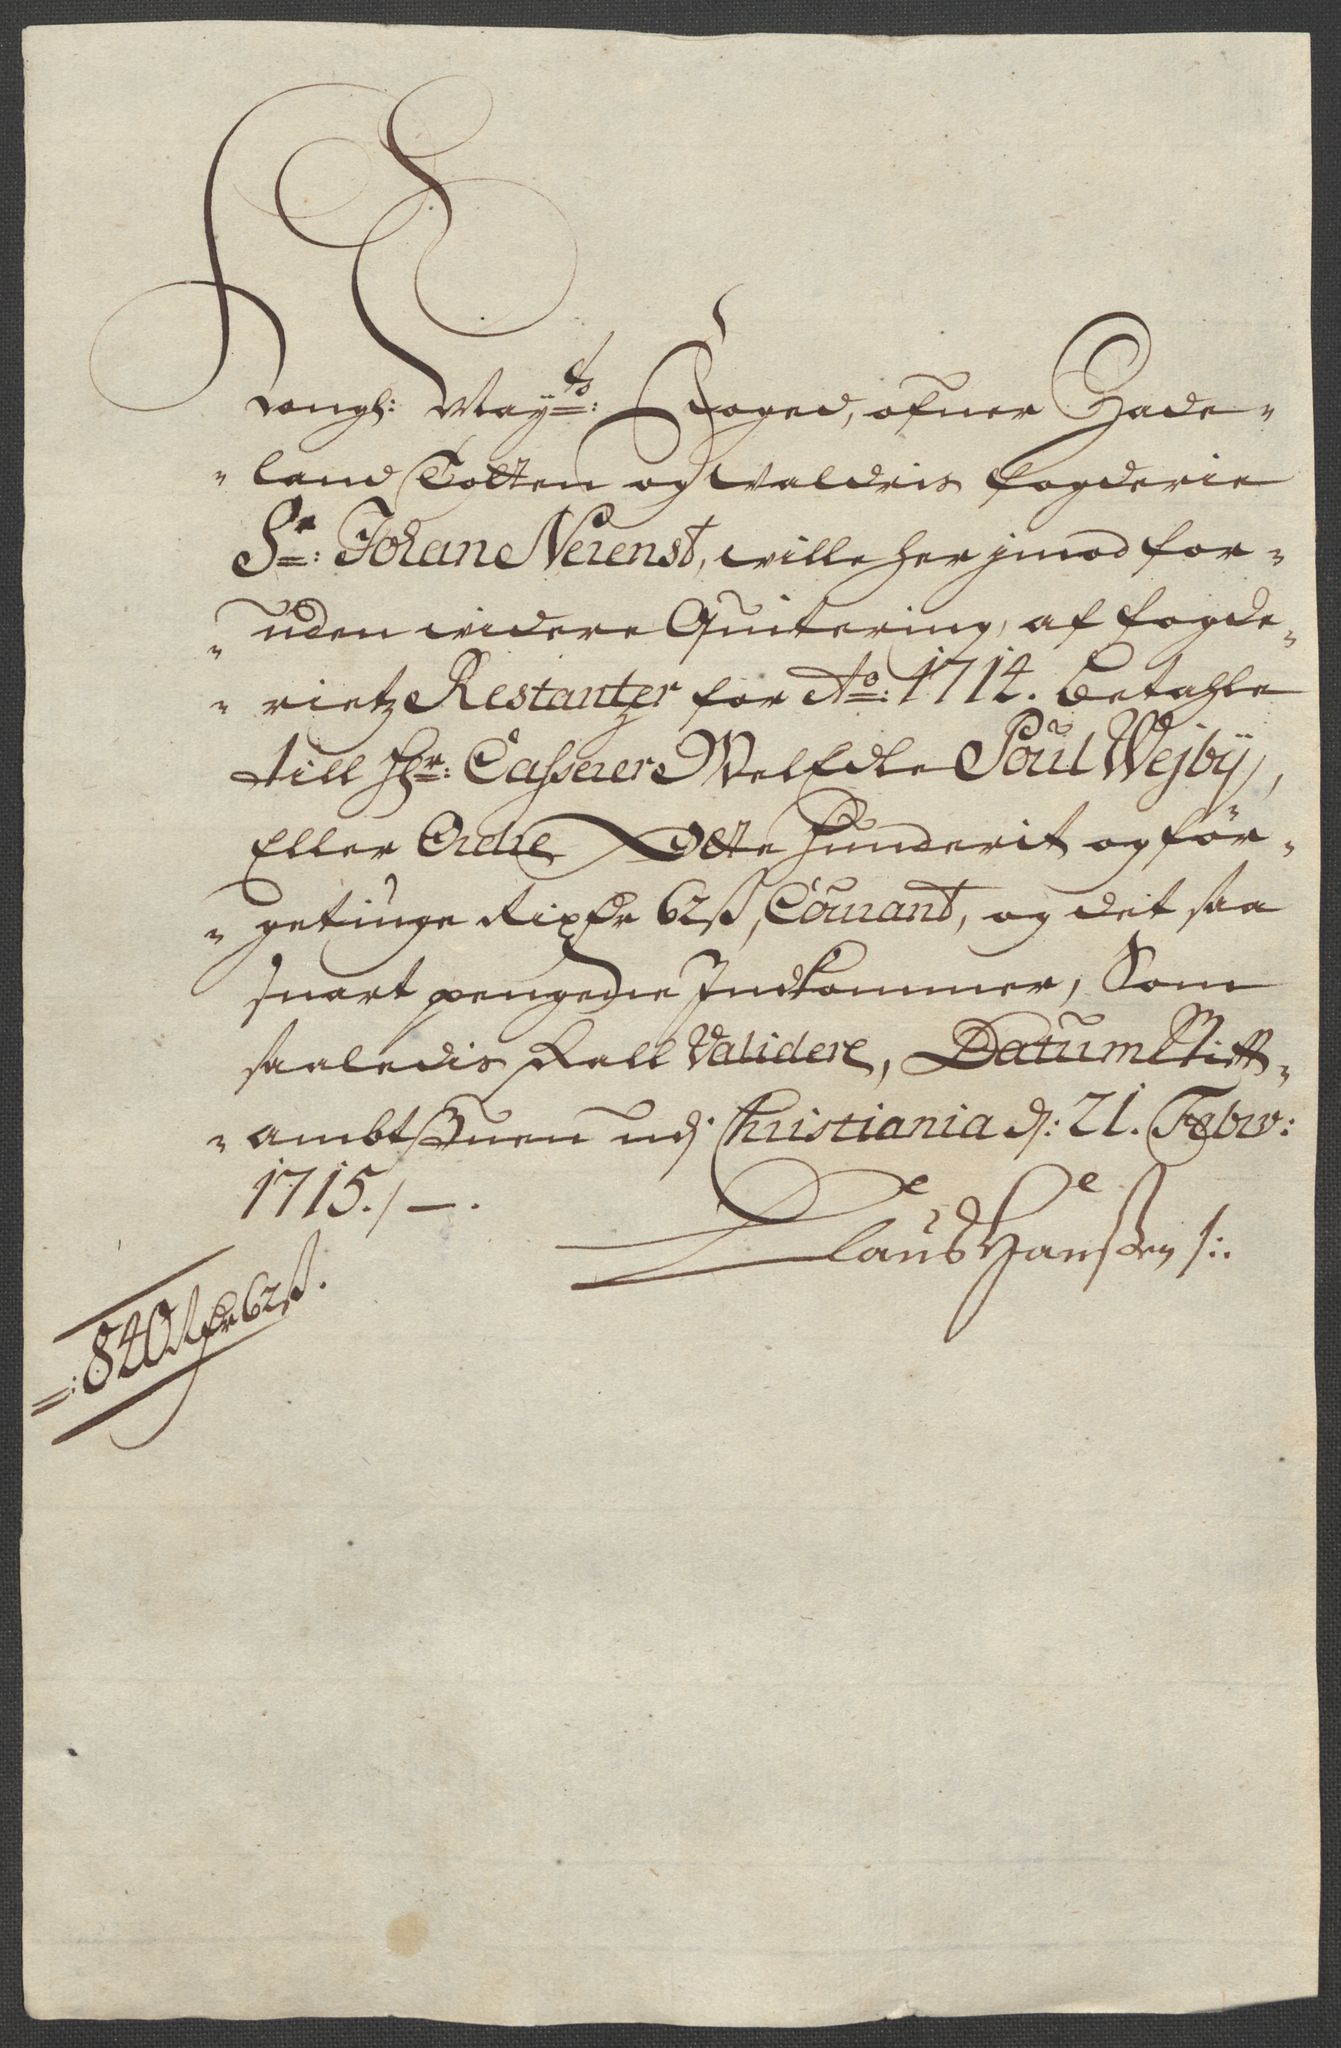 Kongl: May:ts Foged, ofuer Hade-
land Totten og Valdris fogderie
Sr: Johan Neienst, wille her jmod for-
uden widere Quitering, af fogde-
rietz Restantzer for Ao: 1714. betahle
till Hr: Casserer WelEdle Poul Wejby,
Eller Ordre Otte Hunderit og för-
getiuge Rixdr 62 ß, Courant, og det saa
snart pengene Indkommer, Som
saaledis skall Validere, Datum Stift-
ambtstuen udj Christiania d: 21. Febr:
1715./-.
Claus Hanssen /:
=:840 Rdr 62 ß.